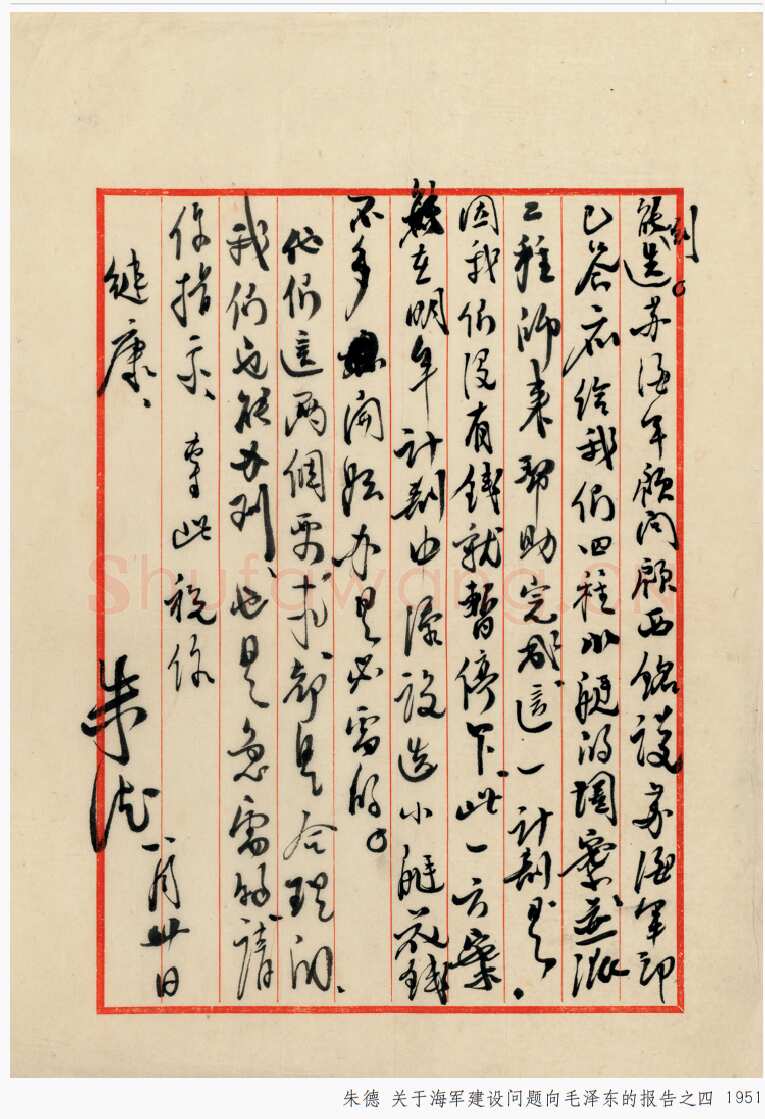 能造到。苏海军顾问顾西铭谈苏海军部
已答应给我们四种小艇的图案并派
工程师来帮助完成这一计划
因我们没有钱就暂停下、此一方案
能在明年计划中添设造小艇花钱
不多 开始办是必需的。
他们這两個要求、都是合理的、
我们也能办到、也是急需的、請
你指示、专此祝你
健康、
朱德
一月卅日
Shufawang.cn
朱德 关于海军建设问题向毛泽东的报告之四 1951